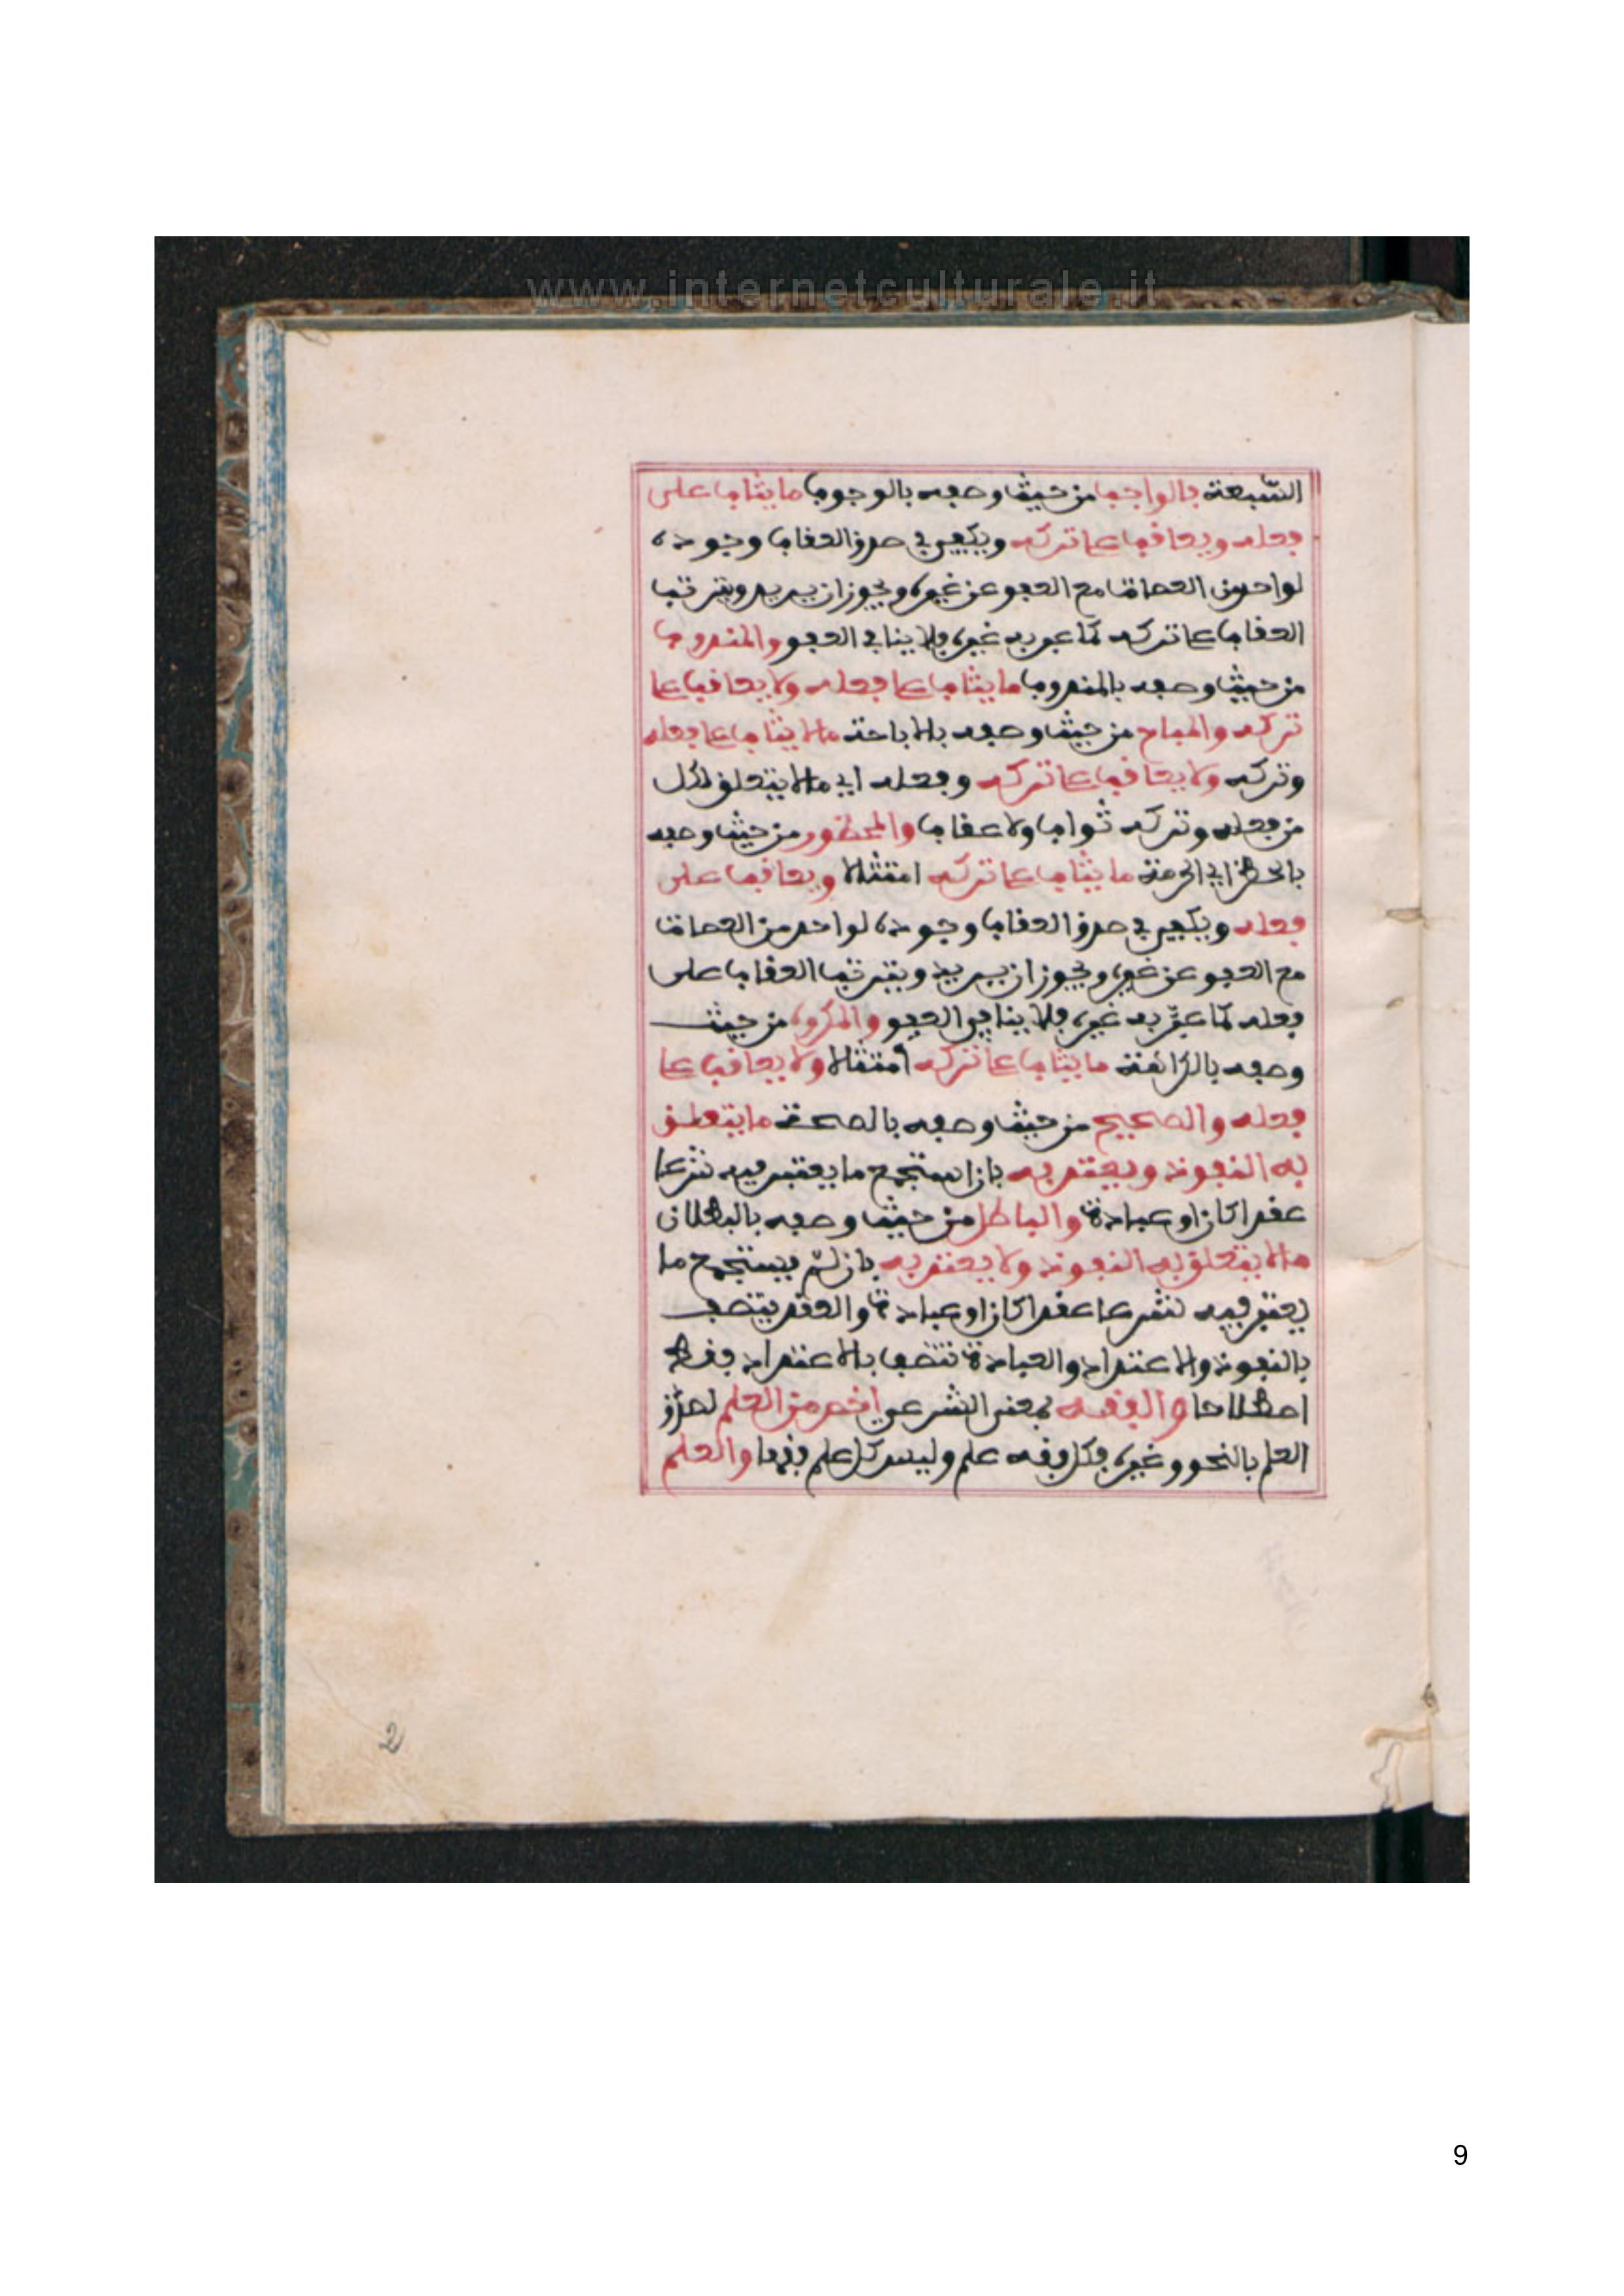 www.internetculturale.it
السبعة فالواجب من حيث وصفه بالوجوب ما يثاب على
فعله ويعاقب على تركه ويكفي في صدق العقاب وجوده
لواحد من العصاة مع العفو عن غيره ويجوز ان يريد ويترتب
العقاب على تركه كما عبر به غيره فلا ينافي العفو والمندوب
من حيث وصفه بالمندوب ما يثاب على فعله ولا يعاقب على
تركه والمباح من حيث وصفه بالاباحة ما لا يثاب على فعله
وتركه ولا يعاقب على تركه وفعله اي ما لا يتعلق لكل
من فعله وتركه ثواب ولا عقاب والمحظور من حيث وصفه
بالحظر اي الحرمة ما يثاب على تركه امتثالا ويعاقب على
فعله ويكفي في صدق العقاب وجوده لواحد من العصاة
مع العفو عن غيره ويجوز ان يريد ويترتب العقاب على
فعله كما عبّر به غيره فلا ينافي العفو والمكروه من حيث
وصفه بالكراهة ما يثاب على تركه امتثالا ولا يعاقب على
فعله والصحيح من حيث وصفه بالصحة ما يتعلق
به النفوذ ويعتد به بان استجمع ما يعتبر فيه شرعا
عقدا كان او عبادة والباطل من حيث وصفه بالبطلان
ما لا يتعلق به النفوذ ولا يعتد به بان لم يستجمع ما
يعتبر فيه شرعا عقدا كان او عبادة والعقد يتصف
بالنفوذ والاعتداد والعبادة تتصف بالاعتداد فقط
اصطلاحا والفقه بمعنى الشرعي اخص من العلم لصدق
العلم بالنحو وغيره فكل فقه علم وليس كل علم فقها والعلم
2
9